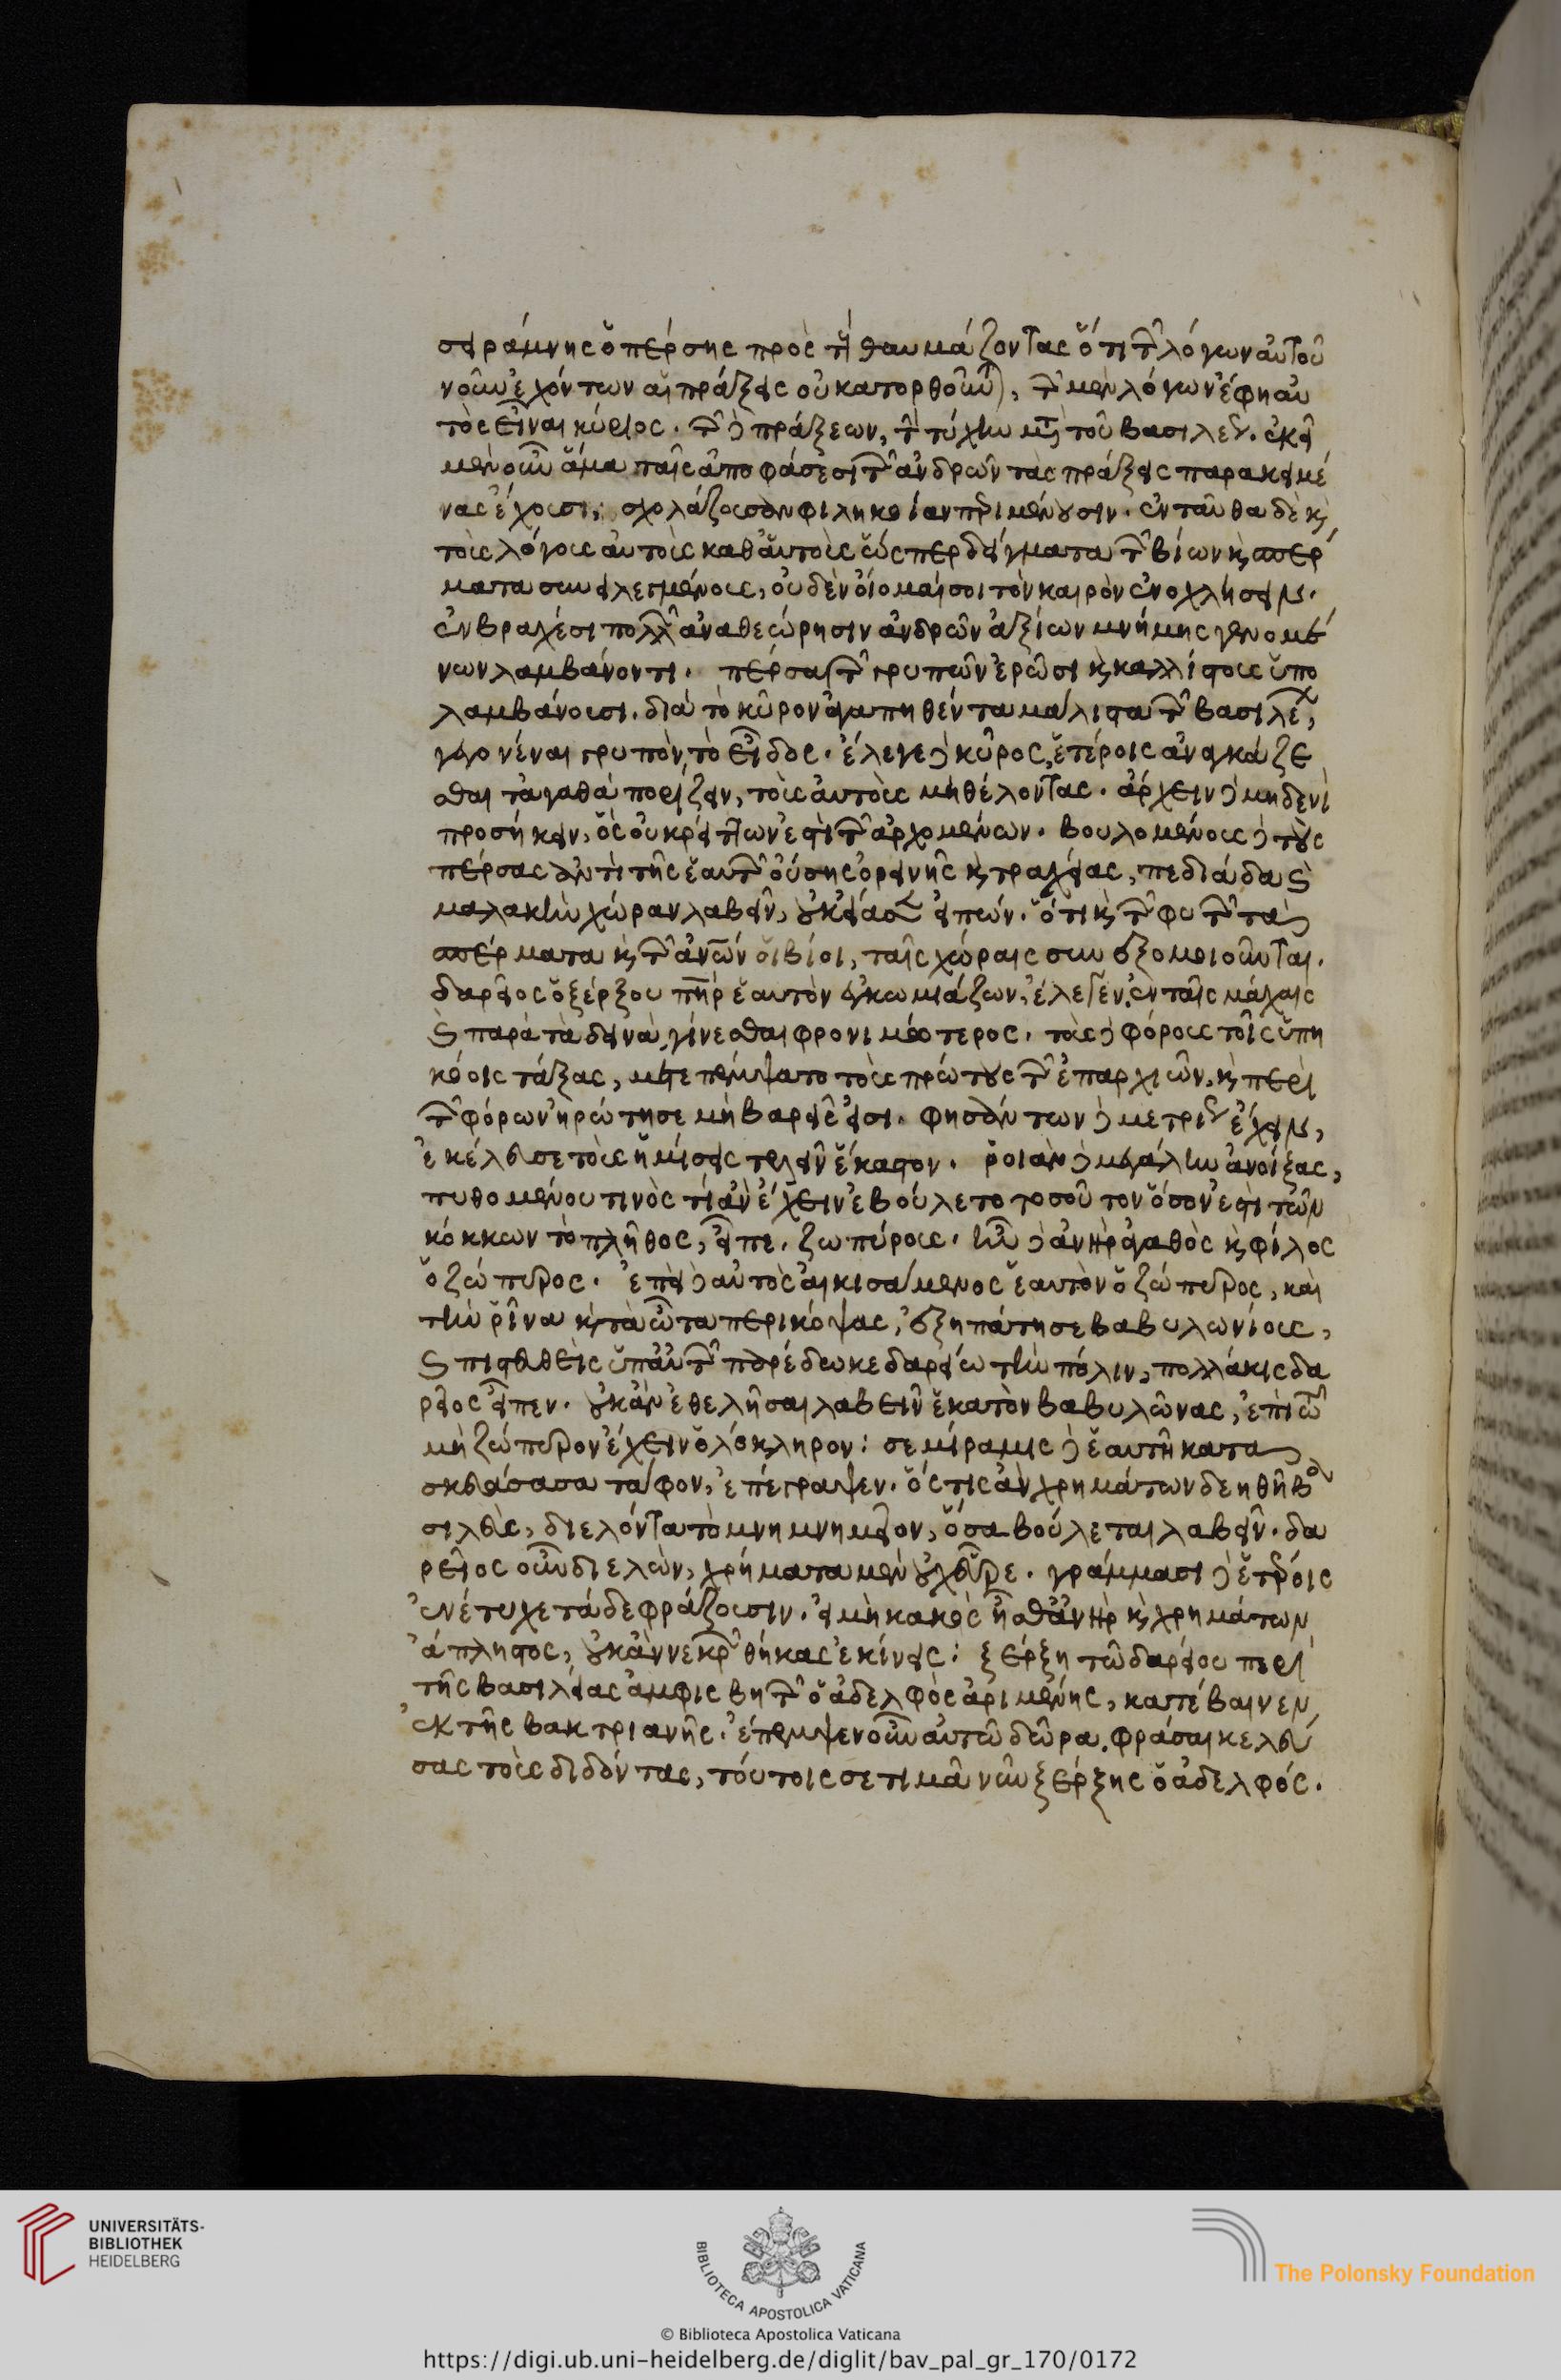 σειράμνης ὁ πέρσης πρὸς τοὺς θαυμάζοντας ὅτι τῶν λόγων αὐτοῦ
νοῦν ἐχόντων αἱ πράξεις οὐ κατορθοῦνται, τῶν μὲν λόγων ἔφη αὐ
τὸς εἶναι κύριος. τῶν δὲ πράξεων, τὴν τύχην μετὰ τοῦ βασιλέως. ἐκεῖ
μὲν οὖν ἅμα ταῖς ἀποφάσεσι τῶν ἀνδρῶν τὰς πράξεις παρακειμέ
νας ἔχουσι, σχολάζουσαν φιληκοΐαν περιμένουσιν. ἐνταῦθα δὲ καὶ
τοὺς λόγους αὐτοὺς καθ' αὑτοὺς ὥσπερ δείγματα τῶν βίων καὶ σπέρ
ματα συνειλεγμένους, οὐδὲν οἴομαί σοι τὸν καιρὸν ἐνοχλήσειν.
ἐν βραχέσι πολλῶν ἀναθεώρησιν ἀνδρῶν ἀξίων μνήμης γενομέ
νων λαμβάνοντι. πέρσαι τῶν γρυπῶν ἐρῶσι καὶ καλλίστους ὑπο
λαμβάνουσι. διὰ τὸ κῦρον ἀγαπηθέντα μάλιστα τῶν βασιλέων,
γεγονέναι γρυπὸν τὸ εἶδος. ἔλεγε δὲ κῦρος, ἑτέροις ἀναγκάζε
σθαι τἀγαθὰ πορίζειν, τοὺς αὑτοῖς μὴ θέλοντας. ἄρχειν δὲ μηδενὶ
προσήκειν, ὃς οὐ κρείττων ἐστὶ τῶν ἀρχομένων. βουλομένους δὲ τοὺς
πέρσας ἀντὶ τῆς ἑαυτῶν οὔσης ὀρεινῆς καὶ τραχείας, πεδιάδα καὶ
μαλακὴν χώραν λαβεῖν, οὐκ εἴασεν εἰπών. ὅτι καὶ τῶν φυτῶν τὰ
σπέρματα καὶ τῶν ἀνθρώπων οἱ βίοι, ταῖς χώραις συνεξομοιοῦνται.
δαρεῖος ὁ ξέρξου πατὴρ ἑαυτὸν ἐγκωμιάζων, ἔλεγεν, ἐν ταῖς μάχαις
καὶ παρὰ τὰ δεινὰ γίνεσθαι φρονιμώτερος. τοὺς δὲ φόρους τοῖς ὑπη
κόοις τάξας, μετεπέμψατο τοὺς πρώτους τῶν ἐπαρχιῶν, καὶ περὶ
τῶν φόρων ἠρώτησε μὴ βαρεῖς εἰσι. φησάντων δὲ μετρίως ἔχειν,
ἐκέλευσε τοὺς ἡμίσεις τελεῖν ἕκαστον. ῥοιὰν δὲ μεγάλην ἀνοίξας,
πυθομένου τινὸς τί ἂν ἔχειν ἐβούλετο τοσοῦτον ὅσον ἐστὶ τῶν
κόκκων τὸ πλῆθος, εἶπε. ζωπύρους. ἦν δὲ ἀνὴρ ἀγαθὸς καὶ φίλος
ὁ ζώπυρος. ἐπεὶ δὲ αὐτὸς αἰκισάμενος ἑαυτὸν ὁ ζώπυρος, καὶ
τὴν ῥῖνα καὶ τὰ ὦτα περικόψας, ἐξηπάτησε βαβυλωνίους,
καὶ πιστευθεὶς ὑπ' αὐτῶν παρέδωκε δαρείω τὴν πόλιν, πολλάκις δα
ρεῖος εἶπεν. οὐκ ἂν ἐθελῆσαι λαβεῖν ἑκατὸν βαβυλῶνας, ἐπὶ τῶ
μὴ ζώπυρον ἔχειν ὁλόκληρον: σεμίραμις δὲ ἑαυτῆ κατα
σκευάσασα τάφον, ἐπέγραψεν. ὅς τις ἂν χρημάτων δεηθῆ βα
σιλεὺς, διελόντα τὸ μνημνημεῖον, ὅσα βούλεται λαβεῖν. δα
ρεῖος οὖν διελὼν, χρήματα μὲν οὐχ εὗρε. γράμμασι δὲ ἑτέροις
ἐνέτυχε τάδε φράζουσιν. εἰ μὴ κακὸς ἦσθ' ἀνὴρ καὶ χρημάτων
ἄπληστος, οὐκ ἂν νεκρῶν θήκας ἐκίνεις: ξέρξη τῶ δαρείου περὶ
τῆς βασιλείας ἀμφισβητῶν ὁ ἀδελφὸς ἀριμένης, κατέβαινεν
ἐκ τῆς βακτριανῆς. ἔπεμψεν οὖν αὐτῶ δῶρα, φράσαι κελεύ
σας τοὺς διδόντας, τούτοις σε τιμᾶ νῦν ξέρξης ὁ ἀδελφός.
UNIVERSITÄTS-
BIBLIOTHEK
HEIDELBERG
BIBLIOTECA APOSTOLICA VATICANA
The Polonsky Foundation
© Biblioteca Apostolica Vaticana
https://digi.ub.uni-heidelberg.de/diglit/bav_pal_gr_170/0172